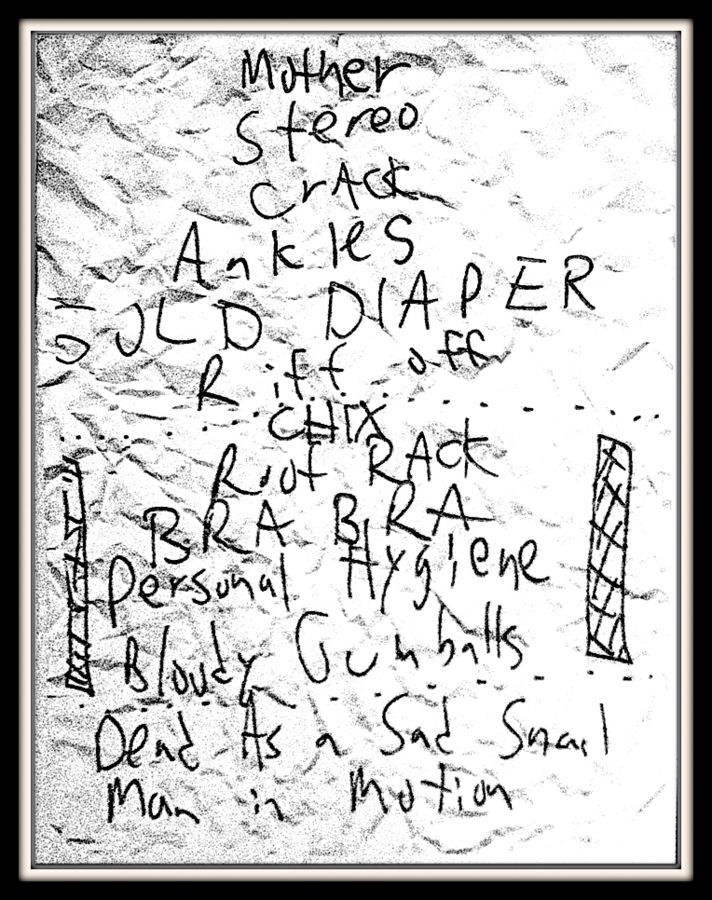 Mother
Stereo
CrAck
AnkleS
OLD DIAPER
Riff off
CHIX
Roof RAck
BRA BRA
Personal Hygiene
Bloody Gumballs
Dead As a Sad Snail
Man in Motion